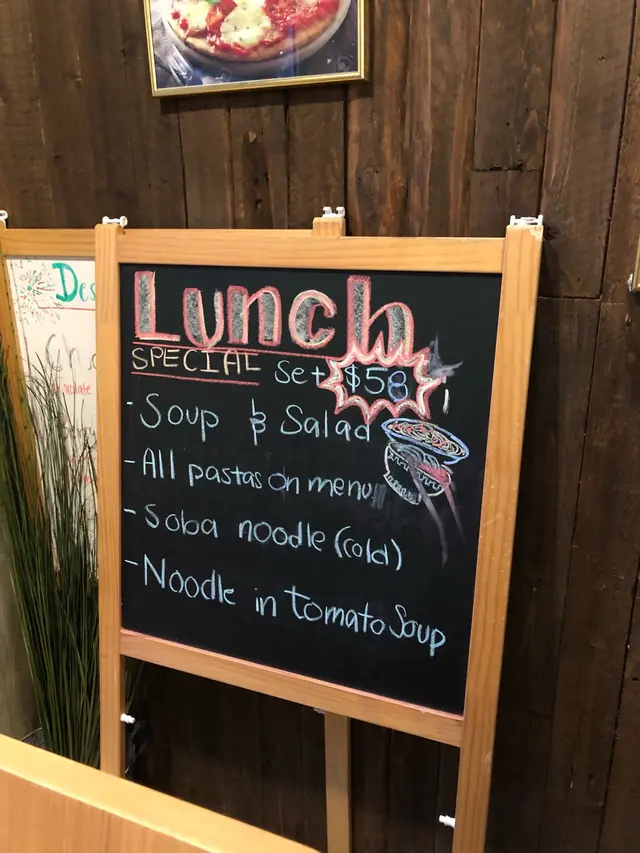 Lunch
SPECIAL set $58
- Soup & Salad
- All pastas on menu
- Soba noodle (cold)
- Noodle in tomato Soup
Des